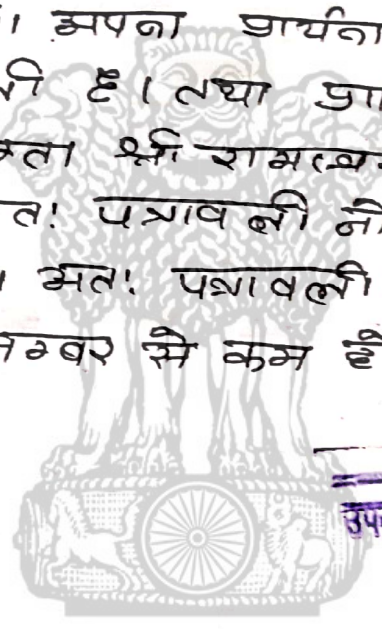 । अपना प्रार्थना
ली है। तथा प्रा
क्ता श्री रामस्वरू
त: पत्रावली नो
। अत: पत्रावली
नम्बर से कम हो
उप